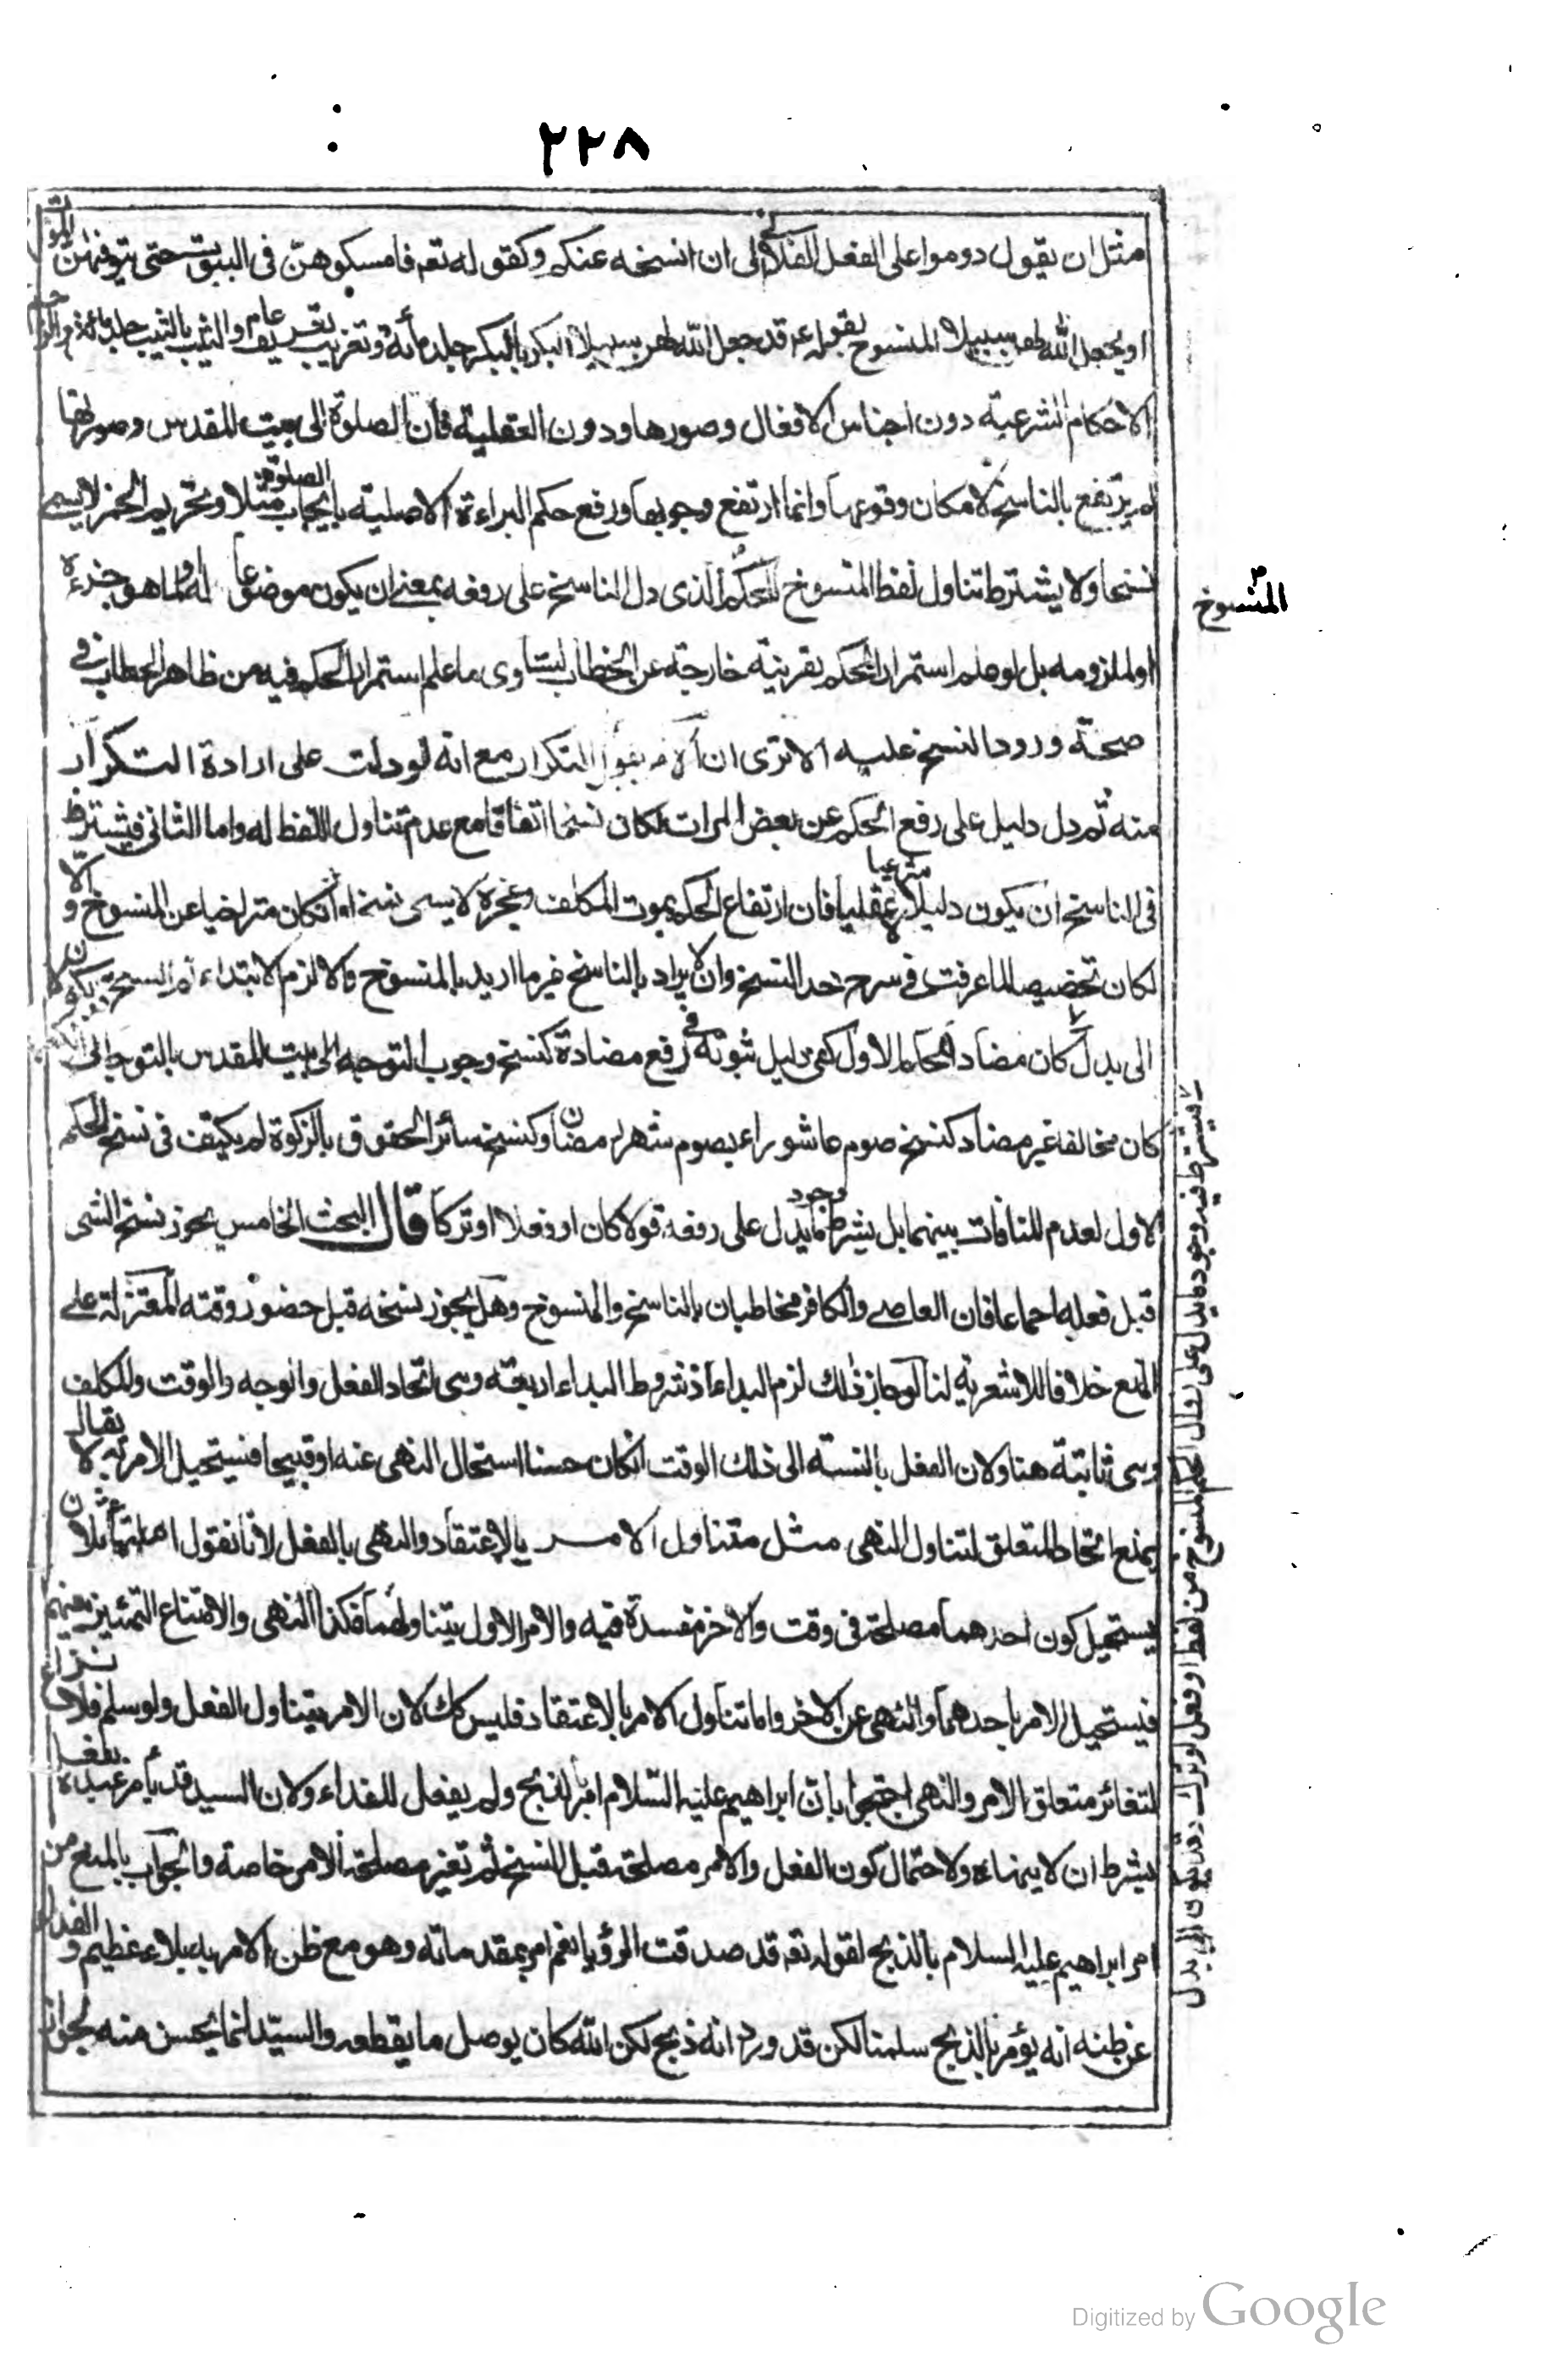 ٢٢٨
مثل ان يقول دوموا على الفعل الفلاني الى ان انسخه عنكم وكقوله تعم فامسكوهن في البيوت حتى يتوفهن الموت
او يجعل الله لهن سبيلا المنسوخ بقوله عم قد جعل الله لهن سبيلا البكر بالبكر جلد مأة وتغريب عام والثيب بالثيب جلد مائة والرجم
الاحكام الشرعية دون اجناس الافعال وصورها ودون العقلية فان الصلوة الى بيت المقدس وصورتها
لم يرتفع بالناسخ لامكان وقوعها وانما ارتفع وجوبها ورفع حكم البراءة الاصلية بايجاب الصلوة مثلا وتحريم الخمر لا يسمى
نسخا ولا يشترط تناول لفظ المنسوخ للحكم الذى دل الناسخ على رفعه بمعنى ان يكون موضوعا له او لما هو جزءه
او لملزومه بل لو علم استمرار الحكم بقرينة خارجة عن الخطاب لتساوى ما علم استمرار الحكم فيه من ظاهر الخطاب في
صحة ورود النسخ عليه الا ترى ان التكرار مع انه لو دلت على ارادة التكرار
منه ثم دل دليل على رفع الحكم عن بعض المرات لكان نسخا اتفاقا مع عدم تناول اللفظ له واما الثانى فيشترط
في الناسخ ان يكون دليلا شرعيا لا عقليا فان ارتفاع الحكم بموت المكلف وعجزه لا يسمى نسخا وان كان متراخيا عن المنسوخ والا
لكان تخصيصا لما عرفت في شرح حد النسخ وان لا يراد بالناسخ غير ما اريد بالمنسوخ والا لزم الابتداء
الى بدل كان مضاد الحكم الاول كفى دليل ثبوته في رفع مضادة كنسخ وجوب التوجه الى بيت المقدس بالتوجه الى
كان مخالفا غير مضاد كنسخ صوم عاشوراء بصوم شهر رمضان وكنسخ سائر الحقوق بالزكوة لم يكتف في نسخ الحكم
الاول لعدم المنافات بينهما بل يشترط وجود ما يدل على رفعه قولا كان او فعلا او تركا قال البحث الخامس يجوز نسخ الشى
قبل فعله اجماعا فان العاصى والكافر مخاطبان بالناسخ والمنسوخ وهل يجوز نسخه قبل حضور وقته المعتزلة على
المنع خلافا للاشعرية لنا لو جاز ذلك لزم البداء اذ شروط البداء اربعة وهى اتحاد الفعل والوجه والوقت والمكلف
وهى ثابتة هنا ولان الفعل بالنسبة الى ذلك الوقت ان كان حسنا استحال النهى عنه او قبيحا فيستحيل الامر به لا يقال
يمنع اتحاد المتعلق لتناول النهى مثل متناول الامر بالاعتقاد والنهى بالفعل لانا نقول المتماثلان
يستحيل كون احدهما مصلحة في وقت والاخر مفسدة فيه والامر الاول يتناولهما فكذا النهى والامتناع التمييز بينهما
فيستحيل الامر باحدهما والنهى عن الاخر واما تناول الامر بالاعتقاد فليس كك لان الامر يتناول الفعل ولو سلم فلا نزاع
لتغائر متعلق الامر والنهى احتجوا بان ابراهيم عليه السلام امر بالذبح ولم يفعل للفداء ولان السيد قد يأمر عبده بفعل
بشرط ان لا ينهاه ولاحتمال كون الفعل والامر مصلحة قبل النسخ ثم تغير مصلحة الامر خاصة والجواب بالمنع من
امر ابراهيم عليه السلام بالذبح لقوله تعم قد صدقت الرؤيا نعم امر بمقدماته وهو مع ظن الامر به بلاء عظيم والفداء
عن ظنه انه يؤمر بالذبح سلمنا لكن قد ورد انه ذبح لكن الله كان يوصل ما يقطعه والسيد انما يحسن منه لجواز
المنسوخ
فيشترط فيه وجود ما يدل على زوال الحكم المنسوخ من لفظ او فعل او ترك
Digitized by Google